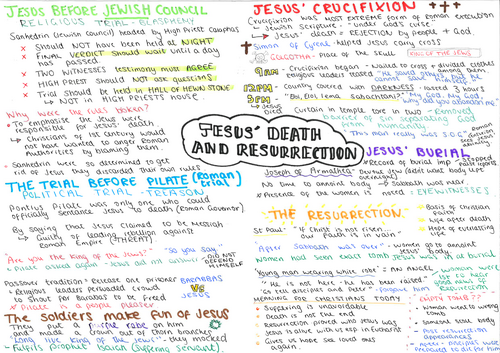 JESUS BEFORE JEWISH COUNCIL
RELIGIOUS TRIAL - BLASPHEMY
Sanhedrin (Jewish council) headed by High Priest Caiaphas
x Should NOT have been held at NIGHT
x FINAL VERDICT SHOULD wait until day has passed
x TWO WITNESS testimony must AGREE
x HIGH PRIEST SHOULD NOT ask questions
x Trial should be held in HALL OF HEWN STONE
↳ NOT in HIGH PRIESTS HOUSE
Why were the rules broken?
To emphasise the Jews were responsible for Jesus' death
↳ Christians of 1st Century would not have wanted to anger Roman Authorities by blaming them.
Sanhedrin were so determined to get rid of Jesus they discarded their own rules
THE TRIAL BEFORE PILATE (Roman trial)
POLITICAL TRIAL - TREASON
Pontius Pilate was only one who could officially sentence Jesus to death (Roman Governor)
By saying that Jesus claimed to be Messiah
↳ Guilty of leading rebellion against Roman Empire (THREAT)
"Are you the king of the Jews?" "So you say"
Pilate asked again Jesus did not answer
DID NOT DEFEND HIMSELF
Passover tradition - release one prisoner
Religious leaders persuaded crowd to shout for Barabbas to be freed
BARABBAS
VS
JESUS
x Pilate is a people pleaser
The soldiers make fun of Jesus
They put a purple robe on him and made a crown out of thorny branches
"Long live king of the Jews" - they mocked
- Fulfils prophet Isaiah (Suffering servant).
JESUS' DEATH
AND RESURRECTION
JESUS' CRUCIFIXION
Crucifixion was most extreme form of Roman execution
↳ Jewish Scripture - "under God's curse"
↳ Jesus' death = REJECTION by people + God
Simon of Cyrene helped Jesus carry cross
GOLGOTHA - Place of the skull
KING OF THE JEWS
9AM
Crucifixion began - waited to cross + divided clothes
religious leaders teased
12PM
country covered with DARKNESS lasted 3 hours
3PM
"Eloi, Eloi, lema sabachthani?" "My God, My God, why did you abandon me?"
↳ Jesus Died
Curtain in temple torn in two - removed barrier of sin separating God from humanity
"This man really was S.O.G"
JESUS' BURIAL
Record of burial imp
Joseph of Arimathea - Buried Jesus (didn't want body left overnight)
No time to anoint body → Sabbath was near.
Presence of the women is noted - EYEWITNESSES
THE RESURRECTION
St Paul "If Christ is not risen... our faith is in vain"
Basis of Christian faith
Life after death
Hope of everlasting life
"After Sabbath was over" - women go to anoint Jesus' body
Women had seen exact tomb Jesus was in at burial
Young man wearing white robe = AN ANGEL
"He is not here - He has been raised"
"Go tell disciples and Peter"
MEANING FOR CHRISTIANS TODAY
Suffering is unavoidable
Death is not the end
Resurrection proved who Jesus was
Jesus is alive with us esp in Eucharist
Gives us hope see loved ones again.
EMPTY TOMB??
- Women went to wrong tomb
- someone took body
- Post resurrection appearances